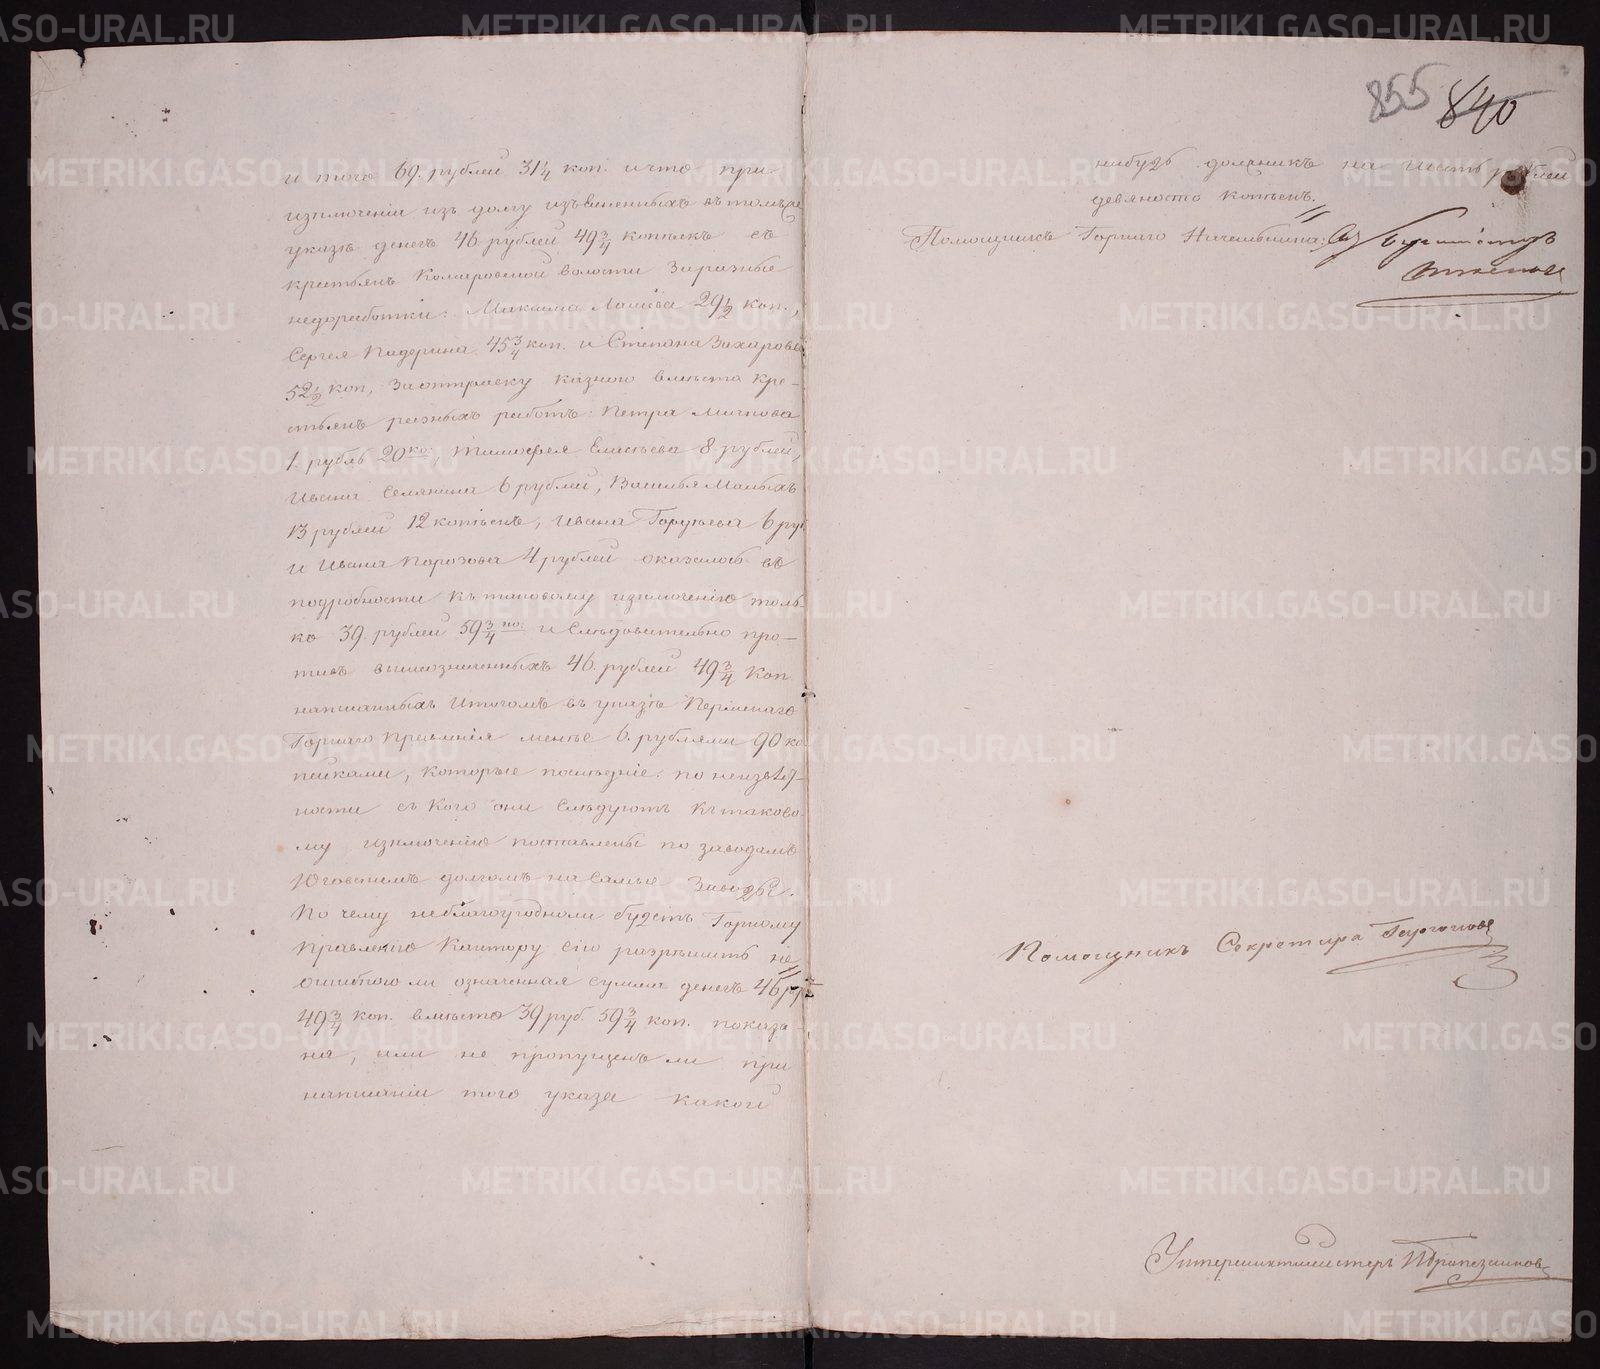 и того 69. рублей 31¼ коп. и что при
изключеніи изъ долгу изъясненныхъ въ томъ же
указѣ денегъ 46 рублей 49¾ копѣекъ съ
крестьянъ Комаровской волости За разные
недоработки: Максима 29½ коп.,
Сергея Пидерина 45¾ коп. и Степана Захарова
52½ коп, За отправку казною вмѣсто кре-
стьянъ разныхъ работъ: Петра
1. рубль 20 ко:, Тимофея Елисѣева 8 рублей,
Ивана Селянина 6 рублей, Василья Малыхъ
13 рублей 12 копѣекъ, Ивана 6 руб
и Ивана Морозова 4 рублей оказалось въ
подробности къ таковому изключенію толь-
ко 39. рублей 59¾ ко: и слѣдовательно про-
тивъ вышеозначенныхъ 46. рублей 49¾ коп
написанныхъ Итогомъ въ указѣ Пермскаго
Горнаго Правленія менѣе 6. рублями 90 ко
пейками, которые послѣдніе. по неизвѣст-
ности съ кого они слѣдуютъ къ таково
му изключенію поставлены по заводамъ
Юговскимъ долгомъ на самые Заводы.
По чему неблагоугодноли будетъ Горному
Правленію Кантору сію разрѣшить не
ошибкою ли означенная сумма денегъ 46 р
49¾ коп. вмѣсто 39 руб. 59¾ коп. показа-
на, или не пропущенъ ли при
написаніи того указа какой
855 840
нибудь должникъ на шесть рублей
девяносто копѣекъ.
Помощникъ Горнаго Начальника:
Помощникъ Секретаря
Унтершихтмейстеръ Трапезников
METRIKI.GASO-URAL.RU